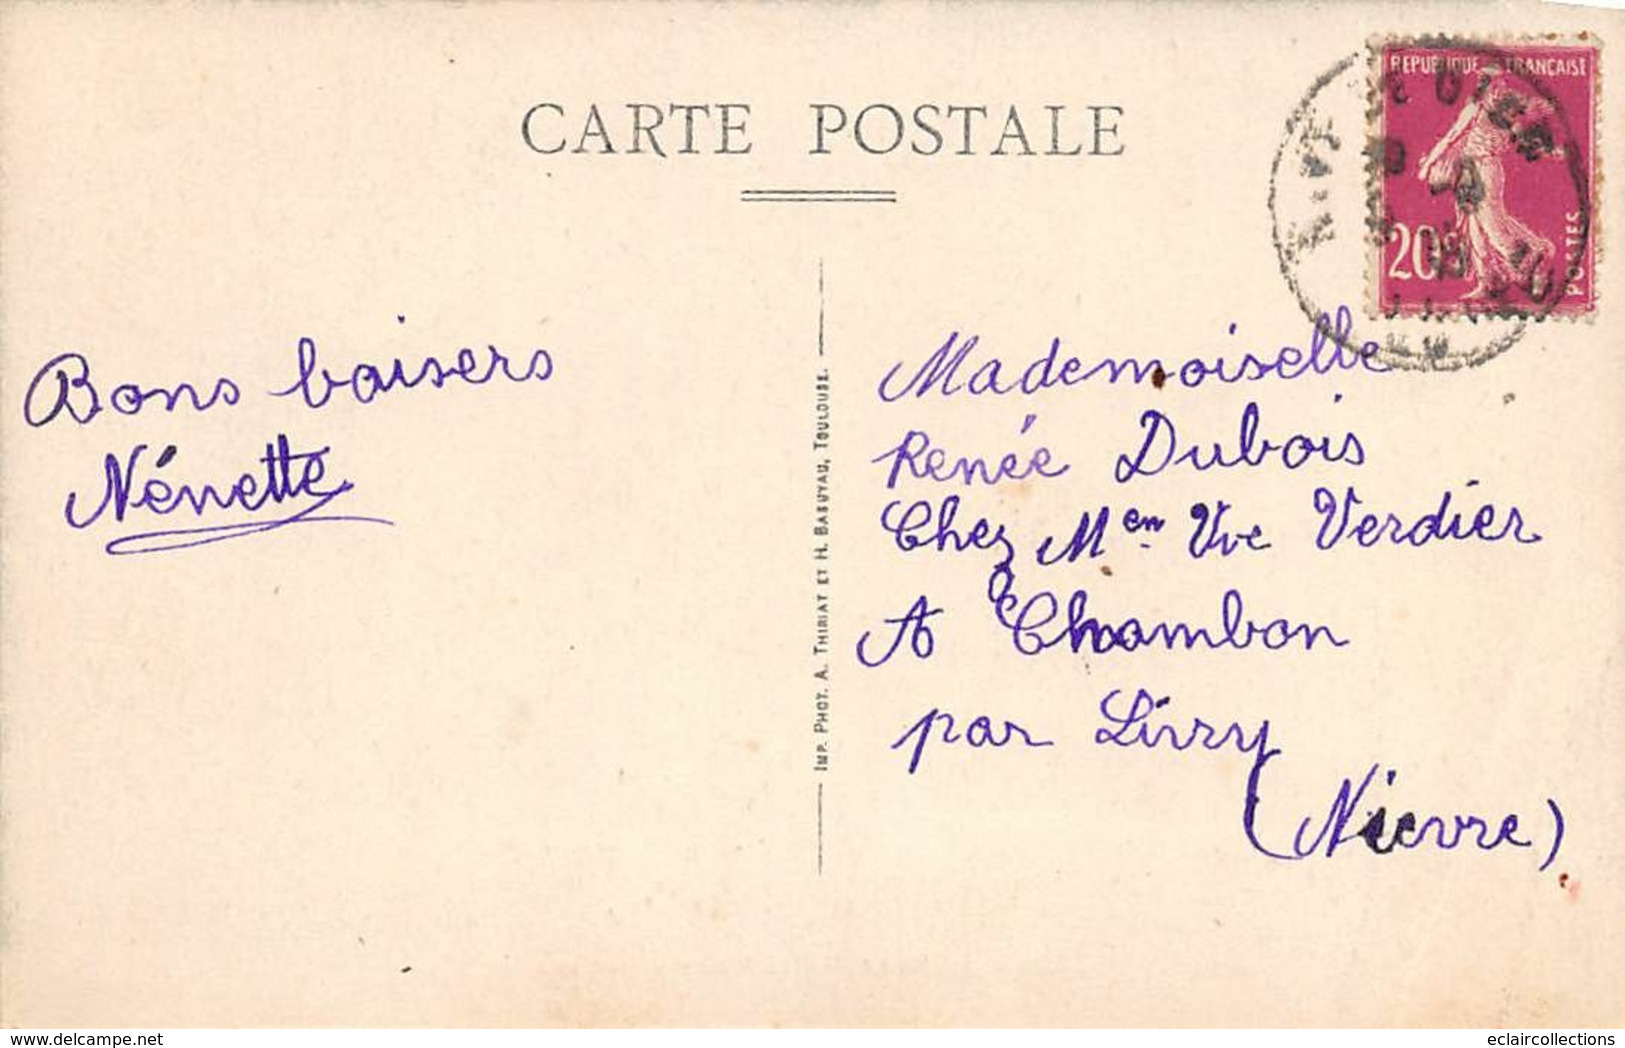 CARTE POSTALE
REPUBLIQUE FRANÇAISE
20c
POSTES
Bons baisers
Nénette
IMP. PHOT. A. THIRIAT ET H. BASUYAU, TOULOUSE.
Mademoiselle
Renée Dubois
Chez Men Vve Verdier
A Chambon
par Livry
(Nievre)
www.delcampe.net
eclaircollections